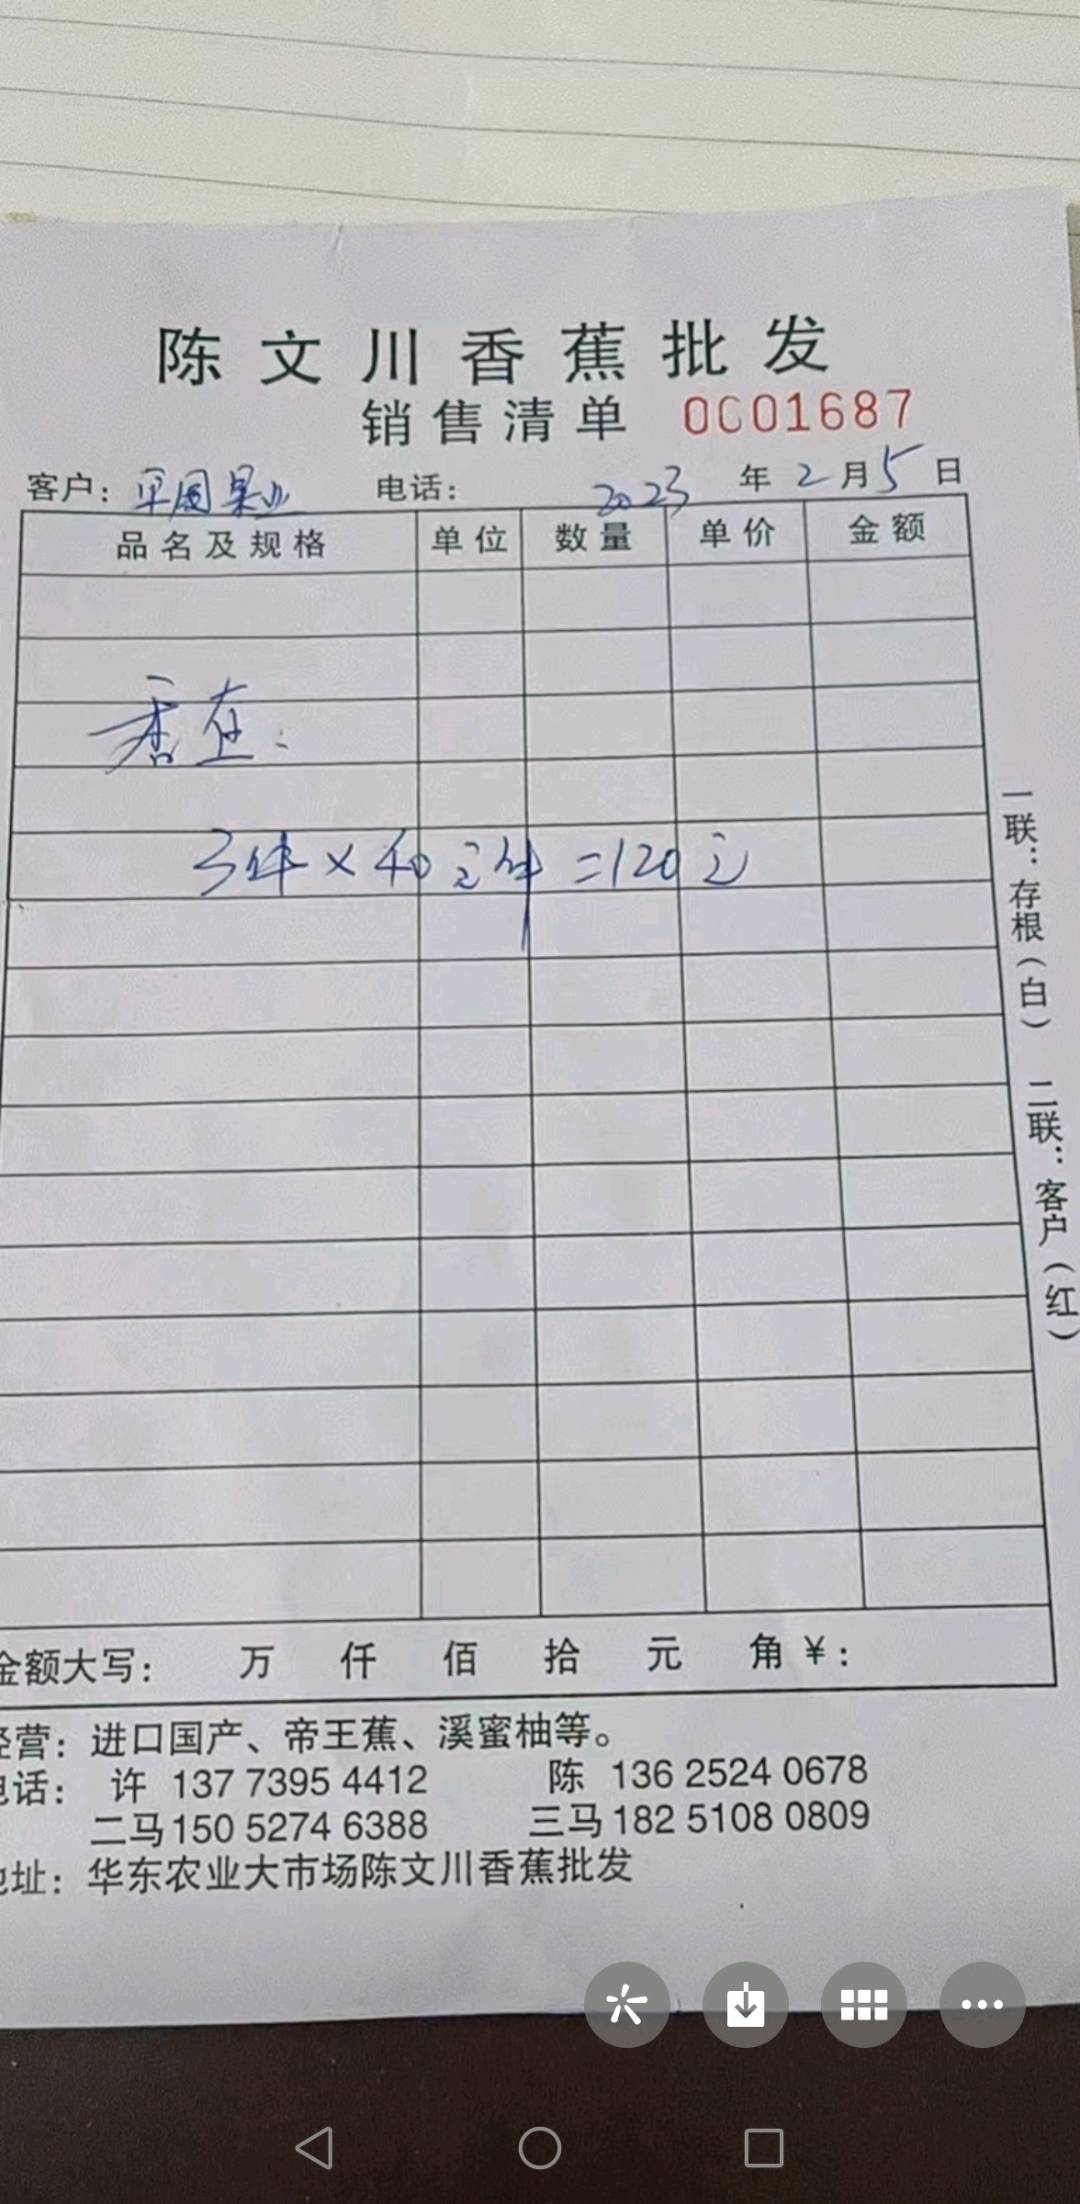 陈文川香蕉批发
销售清单 0001687
客户：平园果业 电话： 2023年2月5日
品名及规格 单位 数量 单价 金额
香
3件×40元/件=120元
一联：存根（白） 二联：客户（红）
金额大写： 万 仟 佰 拾 元 角 ¥：
经营：进口国产、帝王蕉、溪蜜柚等。
电话： 许 137 7395 4412 陈 136 2524 0678
二马150 5274 6388 三马182 5108 0809
地址：华东农业大市场陈文川香蕉批发